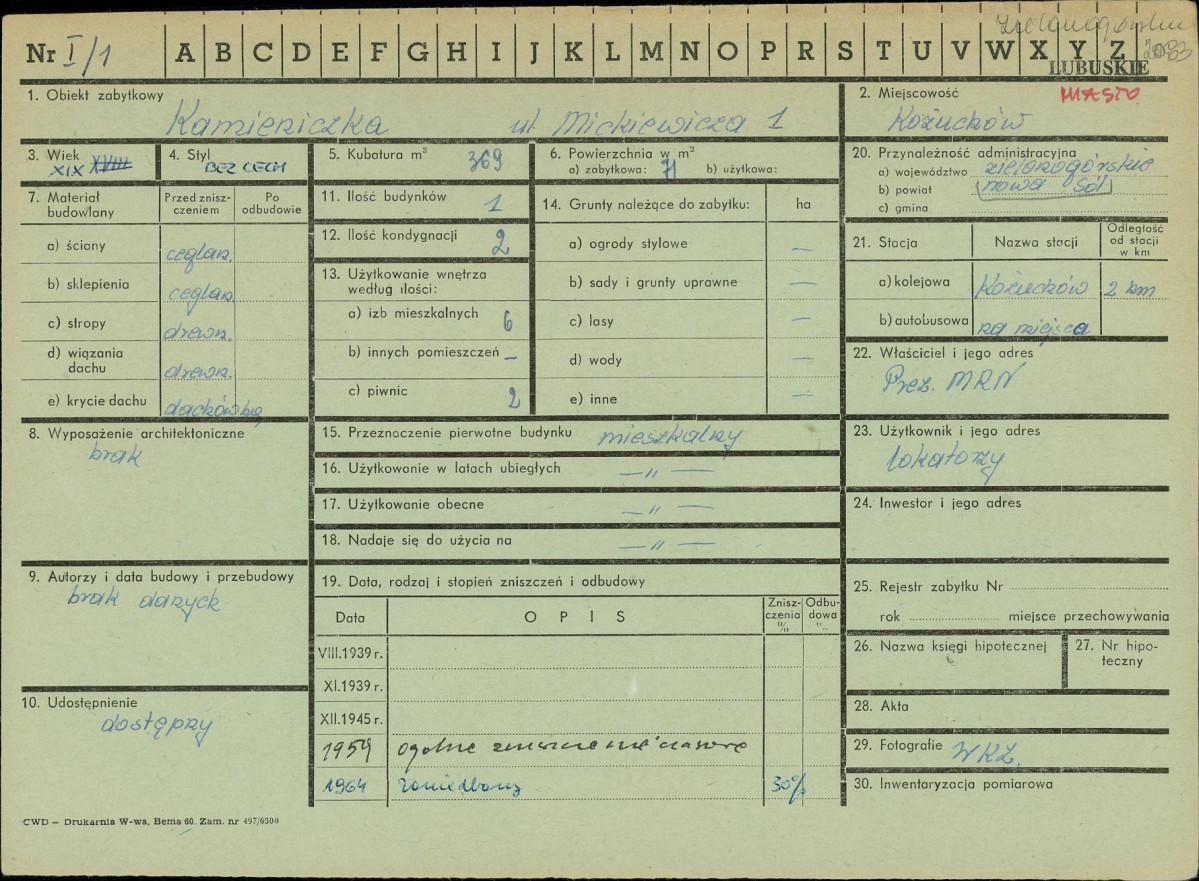 Nr I/1 A B C D E F G H I J K L M N O P R S T U V W X Y Z
LUBUSKIE
MIASTO
1. Obiekt zabytkowy
Kamieniczka ul. Mickiewicza 1
2. Miejscowość
Kożuchów
3. Wiek
XIX XVIII
4. Styl
BEZ CECH
5. Kubatura m³ 369
6. Powierzchnia w m²
a) zabytkowa: 71 b) użytkowa:
7. Materiał budowlany
Przed znisz-
czeniem
Po
odbudowie
a) ściany ceglan.
b) sklepienia ceglan.
c) stropy drewn.
d) wiązania
dachu drewn.
e) krycie dachu dachówką
8. Wyposażenie architektoniczne
brak
9. Autorzy i data budowy i przebudowy
brak danych
10. Udostępnienie
dostępny
11. Ilość budynków 1
12. Ilość kondygnacji 2
13. Użytkowanie wnętrza
według ilości:
a) izb mieszkalnych 6
b) innych pomieszczeń –
c) piwnic 2
14. Grunty należące do zabytku: ha
a) ogrody stylowe —
b) sady i grunty uprawne —
c) lasy —
d) wody —
e) inne —
15. Przeznaczenie pierwotne budynku mieszkalny
16. Użytkowanie w latach ubiegłych — " —
17. Użytkowanie obecne — " —
18. Nadaje się do użycia na — " —
19. Data, rodzaj i stopień zniszczeń i odbudowy
Data O P I S
Znisz-
czenia
%
Odbu-
dowa
"..
VIII.1939 r.
XI.1939 r.
XII.1945 r.
1959 ogólne zniszczenie
1964 zaniedbany 30%
20. Przynależność administracyjna
a) województwo zielonogórskie
b) powiat nowa sól
c) gmina
21. Stacja Nazwa stacji
Odległość
od stacji
w km
a) kolejowa Kożuchów 2 km
b) autobusowa na miejscu
22. Właściciel i jego adres
Prez. MRN
23. Użytkownik i jego adres
lokatorzy
24. Inwestor i jego adres
25. Rejestr zabytku Nr
rok miejsce przechowywania
26. Nazwa księgi hipotecznej
27. Nr hipo-
teczny
28. Akta
29. Fotografie WKZ.
30. Inwentaryzacja pomiarowa
CWD — Drukarnia W-wa, Bema 60. Zam. nr 497/6500